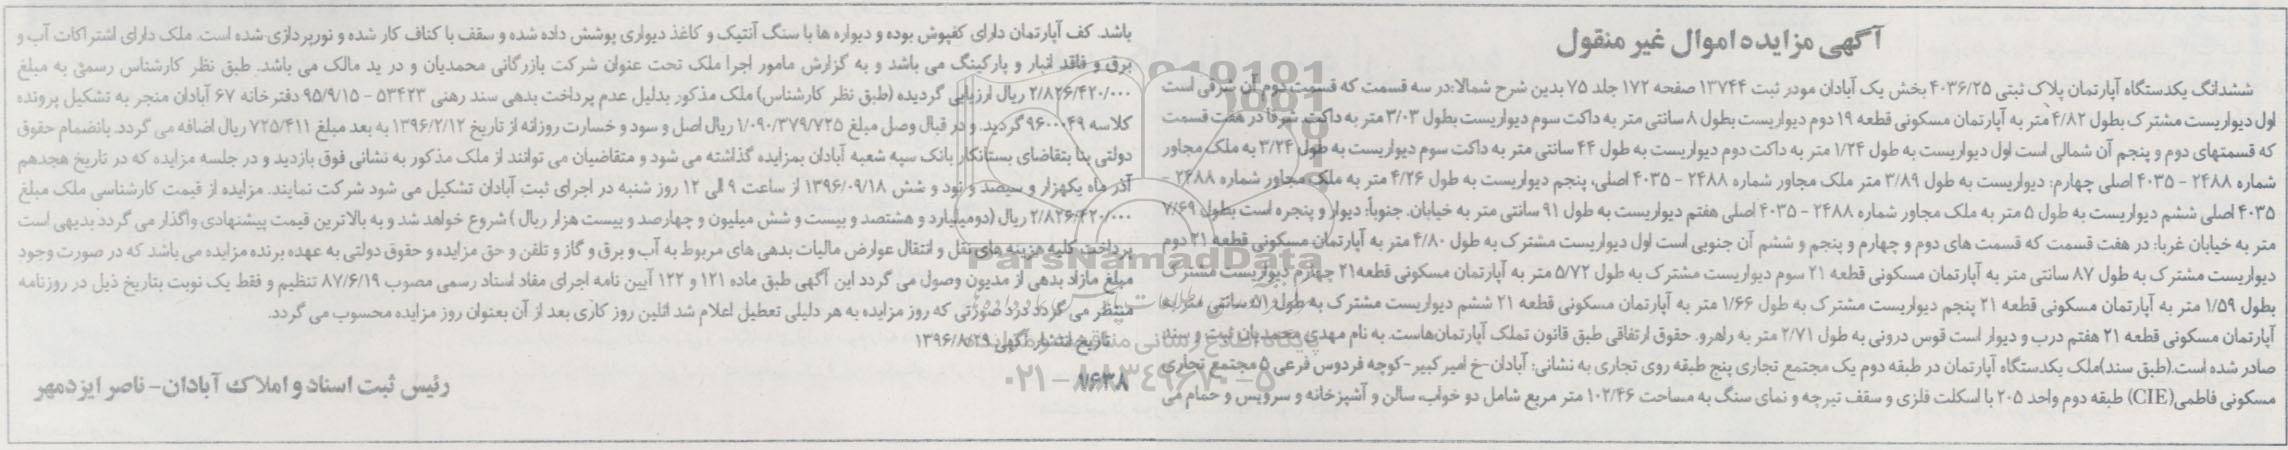 آگهی مزایده اموال غیر منقول
ششدانگ یکدستگاه آپارتمان پلاک ثبتی ۴۰۳۶/۲۵ بخش یک آبادان مودر ثبت ۱۳۷۴۴ صفحه ۱۷۲ جلد ۷۵ بدین شرح شمالا:در سه قسمت که قسمت دوم آن شرقی است
اول دیواریست مشترک بطول ۴/۸۲ متر به آپارتمان مسکونی قطعه ۱۹ دوم دیواریست بطول ۸ سانتی متر به داکت سوم دیواریست بطول ۳/۰۳ متر به داکت. شرقا در هفت قسمت
که قسمتهای دوم و پنجم آن شمالی است اول دیواریست به طول ۱/۲۴ متر به داکت دوم دیواریست به طول ۴۴ سانتی متر به داکت سوم دیواریست به طول ۳/۲۴ به ملک مجاور
شماره ۲۴۸۸ - ۴۰۳۵ اصلی چهارم: دیواریست به طول ۳/۸۹ متر ملک مجاور شماره ۲۴۸۸ - ۴۰۳۵ اصلی، پنجم دیواریست به طول ۴/۲۶ متر به ملک مجاور شماره ۲۴۸۸ -
۴۰۳۵ اصلی ششم دیواریست به طول ۵ متر به ملک مجاور شماره ۲۴۸۸ - ۴۰۳۵ اصلی هفتم دیواریست به طول ۹۱ سانتی متر به خیابان. جنوباً: دیوار و پنجره است بطول ۷/۶۹
متر به خیابان غربا: در هفت قسمت که قسمت های دوم و چهارم و پنجم و ششم آن جنوبی است اول دیواریست مشترک به طول ۴/۸۰ متر به آپارتمان مسکونی قطعه ۲۱ دوم
دیواریست مشترک به طول ۸۷ سانتی متر به آپارتمان مسکونی قطعه ۲۱ سوم دیواریست مشترک به طول ۵/۷۲ متر به آپارتمان مسکونی قطعه۲۱ چهارم دیواریست مشترک
بطول ۱/۵۹ متر به آپارتمان مسکونی قطعه ۲۱ پنجم دیواریست مشترک به طول ۱/۶۶ متر به آپارتمان مسکونی قطعه ۲۱ ششم دیواریست مشترک به طول ۵۱ سانتی متر به
آپارتمان مسکونی قطعه ۲۱ هفتم درب و دیوار است قوس درونی به طول ۲/۷۱ متر به راهرو. حقوق ارتفاقی طبق قانون تملک آپارتمان‌هاست. به نام مهدی محمدیان ثبت و سند
صادر شده است.(طبق سند)ملک یکدستگاه آپارتمان در طبقه دوم یک مجتمع تجاری پنج طبقه روی تجاری به نشانی: آبادان-خ امیرکبیر-کوچه فردوس فرعی ۵ مجتمع تجاری
مسکونی فاطمی(CIE) طبقه دوم واحد ۲۰۵ با اسکلت فلزی و سقف تیرچه و نمای سنگ به مساحت ۱۰۲/۴۶ متر مربع شامل دو خواب، سالن و آشپزخانه و سرویس و حمام می
باشد. کف آپارتمان دارای کفپوش بوده و دیواره ها با سنگ آنتیک و کاغذ دیواری پوشش داده شده و سقف با کناف کار شده و نورپردازی شده است. ملک دارای اشتراکات آب و
برق و فاقد انبار و پارکینگ می باشد و به گزارش مامور اجرا ملک تحت عنوان شرکت بازرگانی محمدیان و در ید مالک می باشد. طبق نظر کارشناس رسمی به مبلغ
۲/۸۲۶/۴۲۰/۰۰۰ ریال ارزیابی گردیده (طبق نظر کارشناس) ملک مذکور بدلیل عدم پرداخت بدهی سند رهنی ۵۳۴۲۳ - ۹۵/۹/۱۵ دفترخانه ۶۷ آبادان منجر به تشکیل پرونده
کلاسه ۹۶۰۰۰۴۹ گردید. و در قبال وصل مبلغ ۱/۰۹۰/۳۷۹/۷۲۵ ریال اصل و سود و خسارت روزانه از تاریخ ۱۳۹۶/۲/۱۲ به بعد مبلغ ۷۲۵/۴۱۱ ریال اضافه می گردد. بانضمام حقوق
دولتی بنا بتقاضای بستانکار بانک سپه شعبه آبادان بمزایده گذاشته می شود و متقاضیان می توانند از ملک مذکور به نشانی فوق بازدید و در جلسه مزایده که در تاریخ هجدهم
آذر ماه یکهزار و سیصد و نود و شش ۱۳۹۶/۰۹/۱۸ از ساعت ۹ الی ۱۲ روز شنبه در اجرای ثبت آبادان تشکیل می شود شرکت نمایند. مزایده از قیمت کارشناسی ملک مبلغ
۲/۸۲۶/۴۲۰/۰۰۰ ریال (دومیلیارد و هشتصد و بیست و شش میلیون و چهارصد و بیست هزار ریال ) شروع خواهد شد و به بالاترین قیمت پیشنهادی واگذار می گردد بدیهی است
پرداخت کلیه هزینه های نقل و انتقال عوارض مالیات بدهی های مربوط به آب و برق و گاز و تلفن و حق مزایده و حقوق دولتی به عهده برنده مزایده می باشد که در صورت وجود
مبلغ مازاد بدهی از مدیون وصول می گردد این آگهی طبق ماده ۱۲۱ و ۱۲۲ آیین نامه اجرای مفاد اسناد رسمی مصوب ۸۷/۶/۱۹ تنظیم و فقط یک نوبت بتاریخ ذیل در روزنامه
منتظر می گردد درد صورتی که روز مزایده به هر دلیلی تعطیل اعلام شد اثلین روز کاری بعد از آن بعنوان روز مزایده محسوب می گردد.
تاریخ انتشار آگهی ۱۳۹۶/۸/۲۹
۸۶۳۸
رئیس ثبت اسناد و املاک آبادان- ناصر ایزدمهر
ParsNamadData
۰۲۱-۸۸۳۴۹۶۷۰-۵